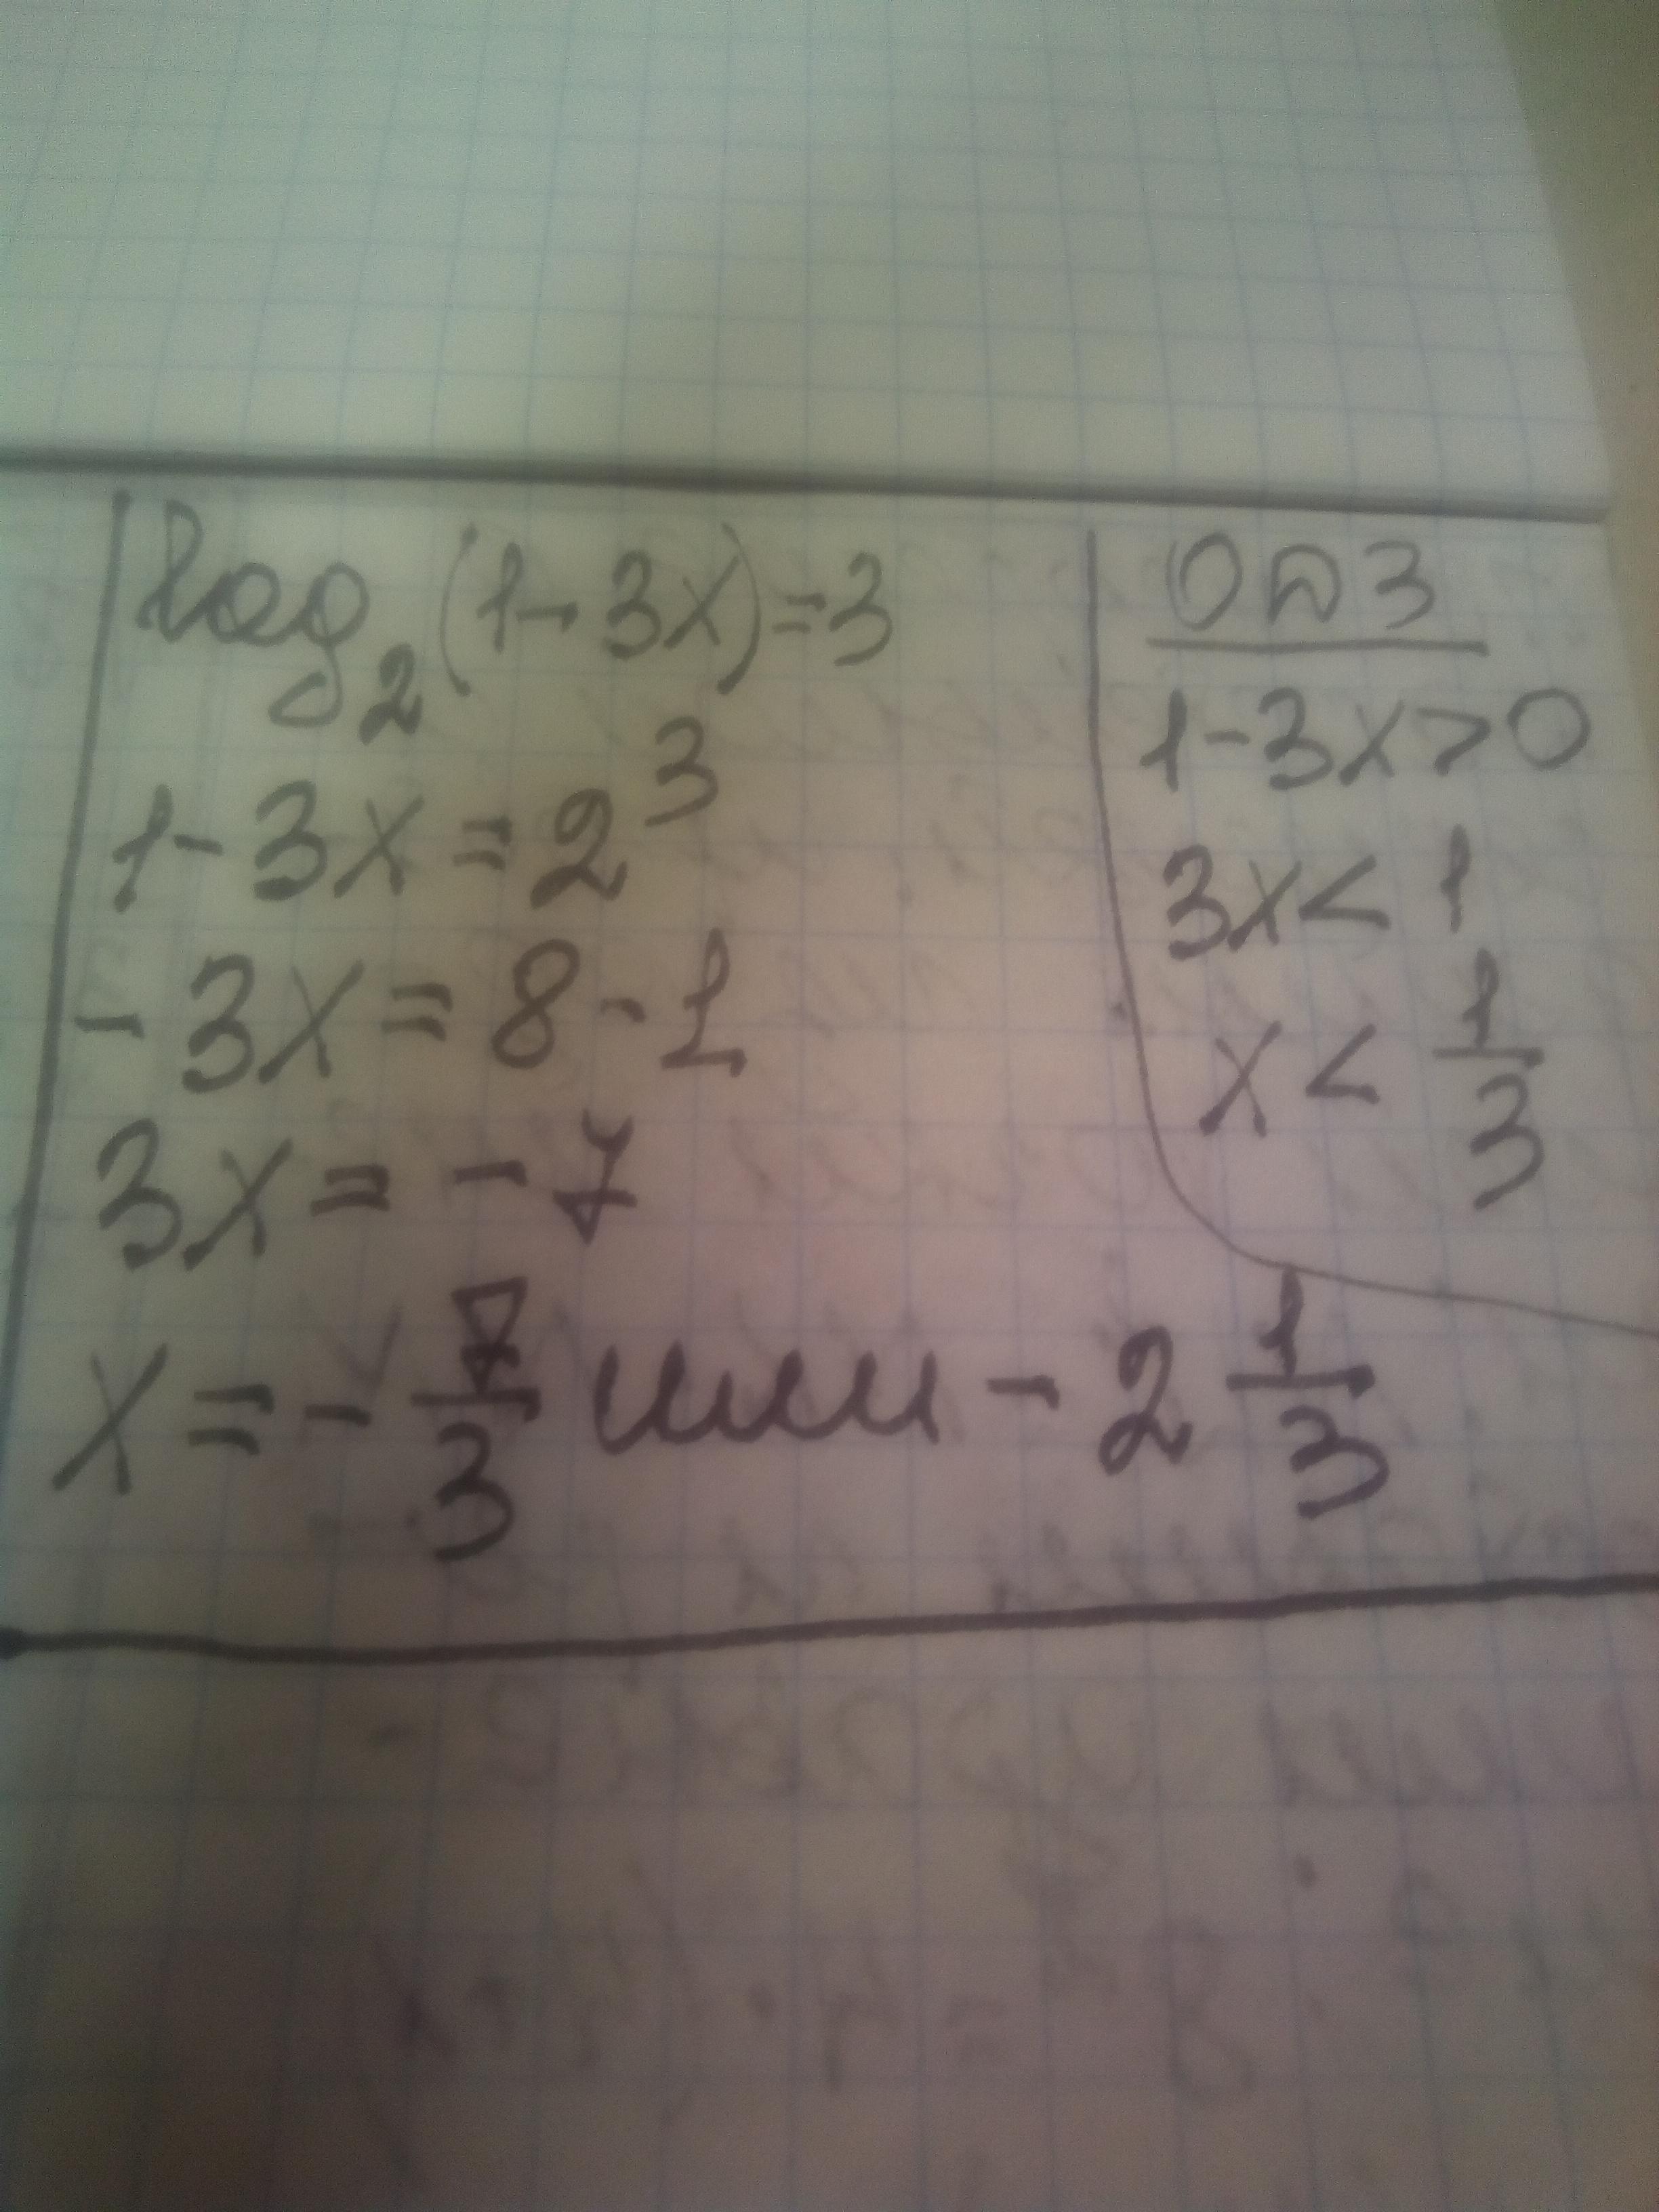 log₂(1-3x)=3
1-3x=2³
-3x=8-1
3x=-7
x=-7/3 или -2 1/3
ОДЗ
1-3x>0
3x<1
x<1/3